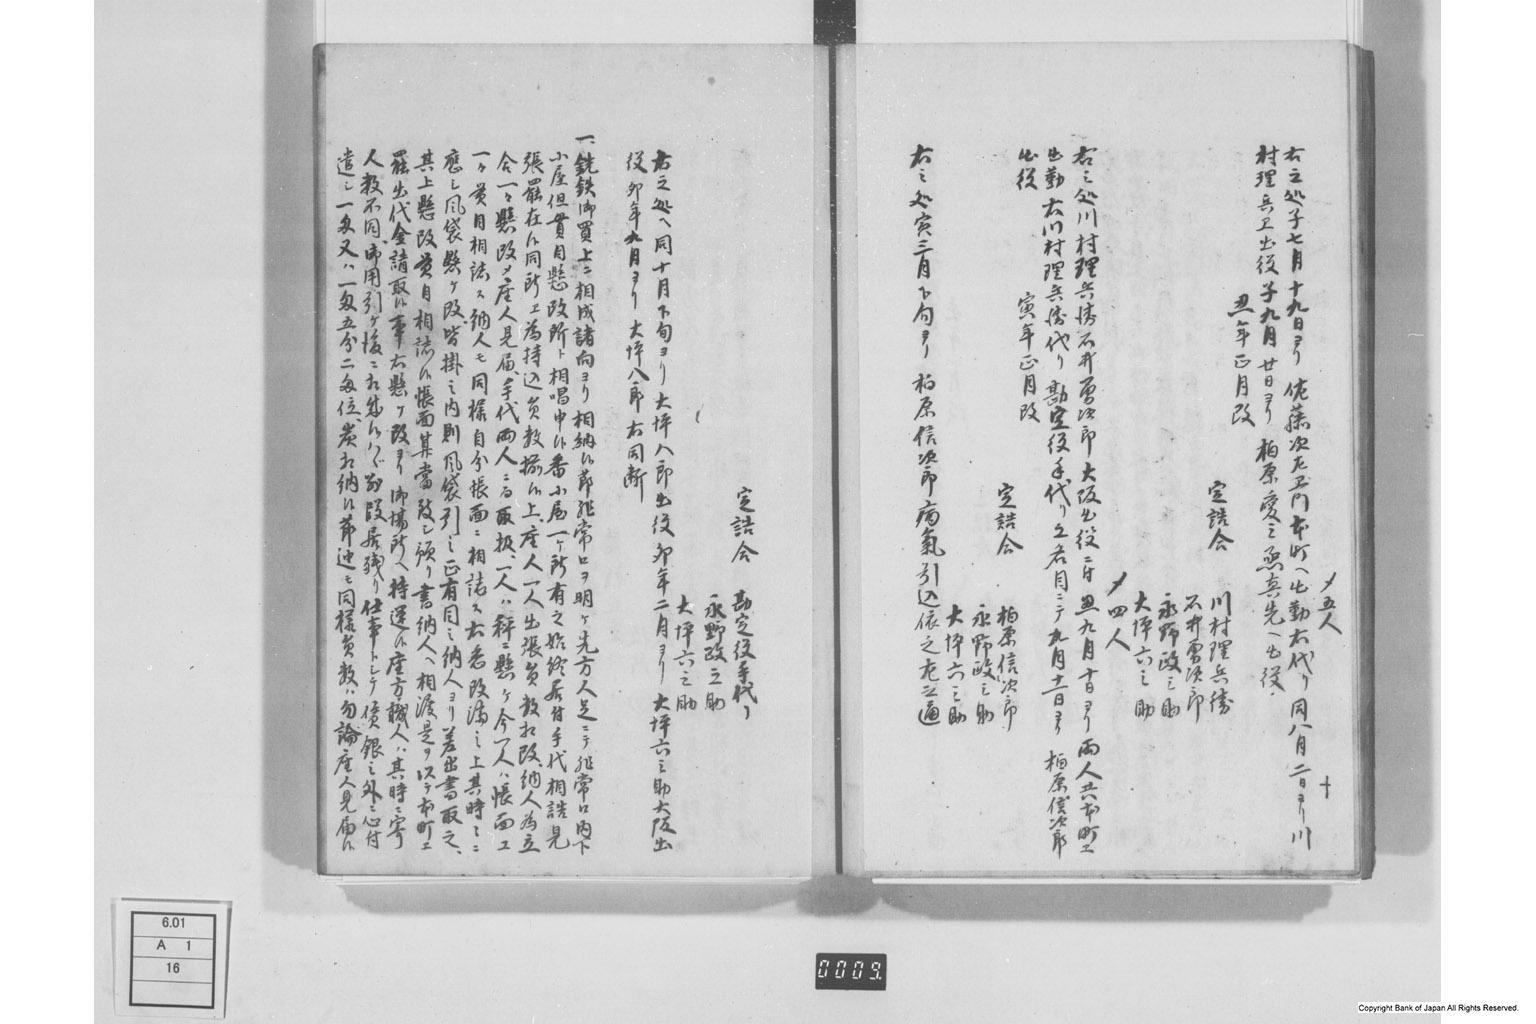 〆五人
右之処子七月十九日ヨリ佐藤次左衛門本町ヘ出勤右代リ同八月二日ヨリ川
村理兵衛出役子九月廿日ヨリ柏原愛三郎真先ヘ出役
丑年正月改
定詰合
川村理兵衛
石井勇次郎
永野政之助
大坪六之助
〆四人
右之処川村理兵衛石井勇次郎大阪出役ニ付丑九月十日ヨリ両人共本町エ
出勤右川村理兵衛代リ勘定役手代リ之名目ニテ九月十一日ヨリ柏原信次郎
出役
寅年正月改
定詰合
柏原信次郎
永野政之助
大坪六之助
右之処寅三月下旬ヨリ柏原信次郎病氣引込依之左之通
定詰合 勘定役手代リ
永野政之助
大坪六之助
右之処ヘ同十月下旬ヨリ大坪八郎出役卯年二月ヨリ大坪六之助大阪出
役卯年九月ヨリ大坪八郎右同断
一銑鉄御買上ニ相成諸向ヨリ相納候節非常口ヲ明ケ先方人足ニテ非常口内下
小屋但貫目懸改所ト相唱申候番小屋一ケ所有之始終居付手代相詰見
張罷在候同所エ為持込員数揃候上座人一人出張員数相改納人為立
合一々懸改メ座人見届手代両人ニ而取扱一人ハ秤ニ懸ケ今一人ハ帳面エ
一々貫目相誌ス納人モ同様自分帳面ニ相誌ス右悉改済之上其時々ニ
應シ風袋懸ケ改皆掛之内則風袋引之正有目之納人ヨリ差出書取之
其上懸改貫目相誌候帳面其當改之預リ書納人ヘ相渡是ヲ以テ本町エ
罷出代金請取候事右懸ケ改ヨリ御場所ヘ持運候座方職人ハ其時々寄
人数不同御用引ケ後ニ相成候ハヾ別段居残リ仕事トシテ賃銀之外ニ心付
遣シ一匁又ハ一匁五分二匁位炭相納候節迚モ同様員数ハ勿論座人見届候
6.01
A 1
16
0009
Copyright Bank of Japan All Rights Reserved.